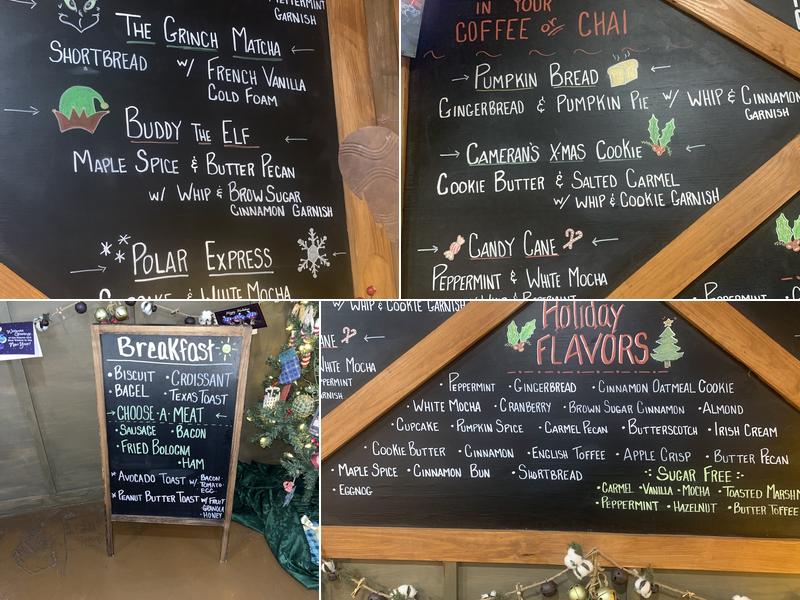 GARNISH
THE GRINCH MATCHA
SHORTBREAD W/ FRENCH VANILLA
COLD FOAM
BUDDY THE ELF
MAPLE SPICE & BUTTER PECAN
W/ WHIP & BROWN SUGAR
CINNAMON GARNISH
POLAR EXPRESS
& WHITE MOCHA
IN YOUR
COFFEE or CHAI
PUMPKIN BREAD
GINGERBREAD & PUMPKIN PIE W/ WHIP & CINNAMON
GARNISH
CAMERAN'S X-MAS COOKIE
COOKIE BUTTER & SALTED CARMEL
W/ WHIP & COOKIE GARNISH
CANDY CANE
PEPPERMINT & WHITE MOCHA
Breakfast
• BISCUIT • CROISSANT
• BAGEL • TEXAS TOAST
CHOOSE • A • MEAT
• SAUSAGE • BACON
• FRIED BOLOGNA
• HAM
* AVOCADO TOAST W/ BACON
• TOMATO
EGG
* PEANUT BUTTER TOAST W/ FRUIT
GRANOLA
• HONEY
W/ WHIP & COOKIE GARNISH
WHITE MOCHA
Holiday
FLAVORS
• PEPPERMINT • GINGERBREAD • CINNAMON OATMEAL COOKIE
• WHITE MOCHA • CRANBERRY • BROWN SUGAR CINNAMON • ALMOND
• CUPCAKE • PUMPKIN SPICE • CARMEL PECAN • BUTTERSCOTCH • IRISH CREAM
• COOKIE BUTTER • CINNAMON • ENGLISH TOFFEE • APPLE CRISP • BUTTER PECAN
• MAPLE SPICE • CINNAMON BUN • SHORTBREAD
• EGGNOG
SUGAR FREE
• CARMEL • VANILLA • MOCHA • TOASTED MARSHM
• PEPPERMINT • HAZELNUT • BUTTER TOFFEE